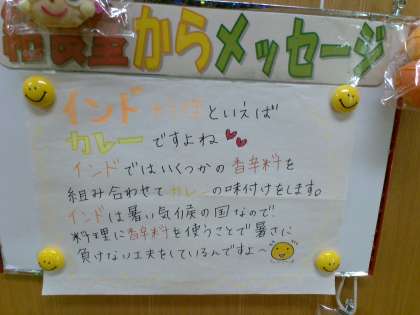 給食室からメッセージ
インド料理といえば
カレーですよね
インドではいくつかの香辛料を
組み合わせてカレーの味付けをします。
インドは暑い気候の国なので
料理に香辛料を使うことで暑さに
負けない工夫をしているんですよ〜